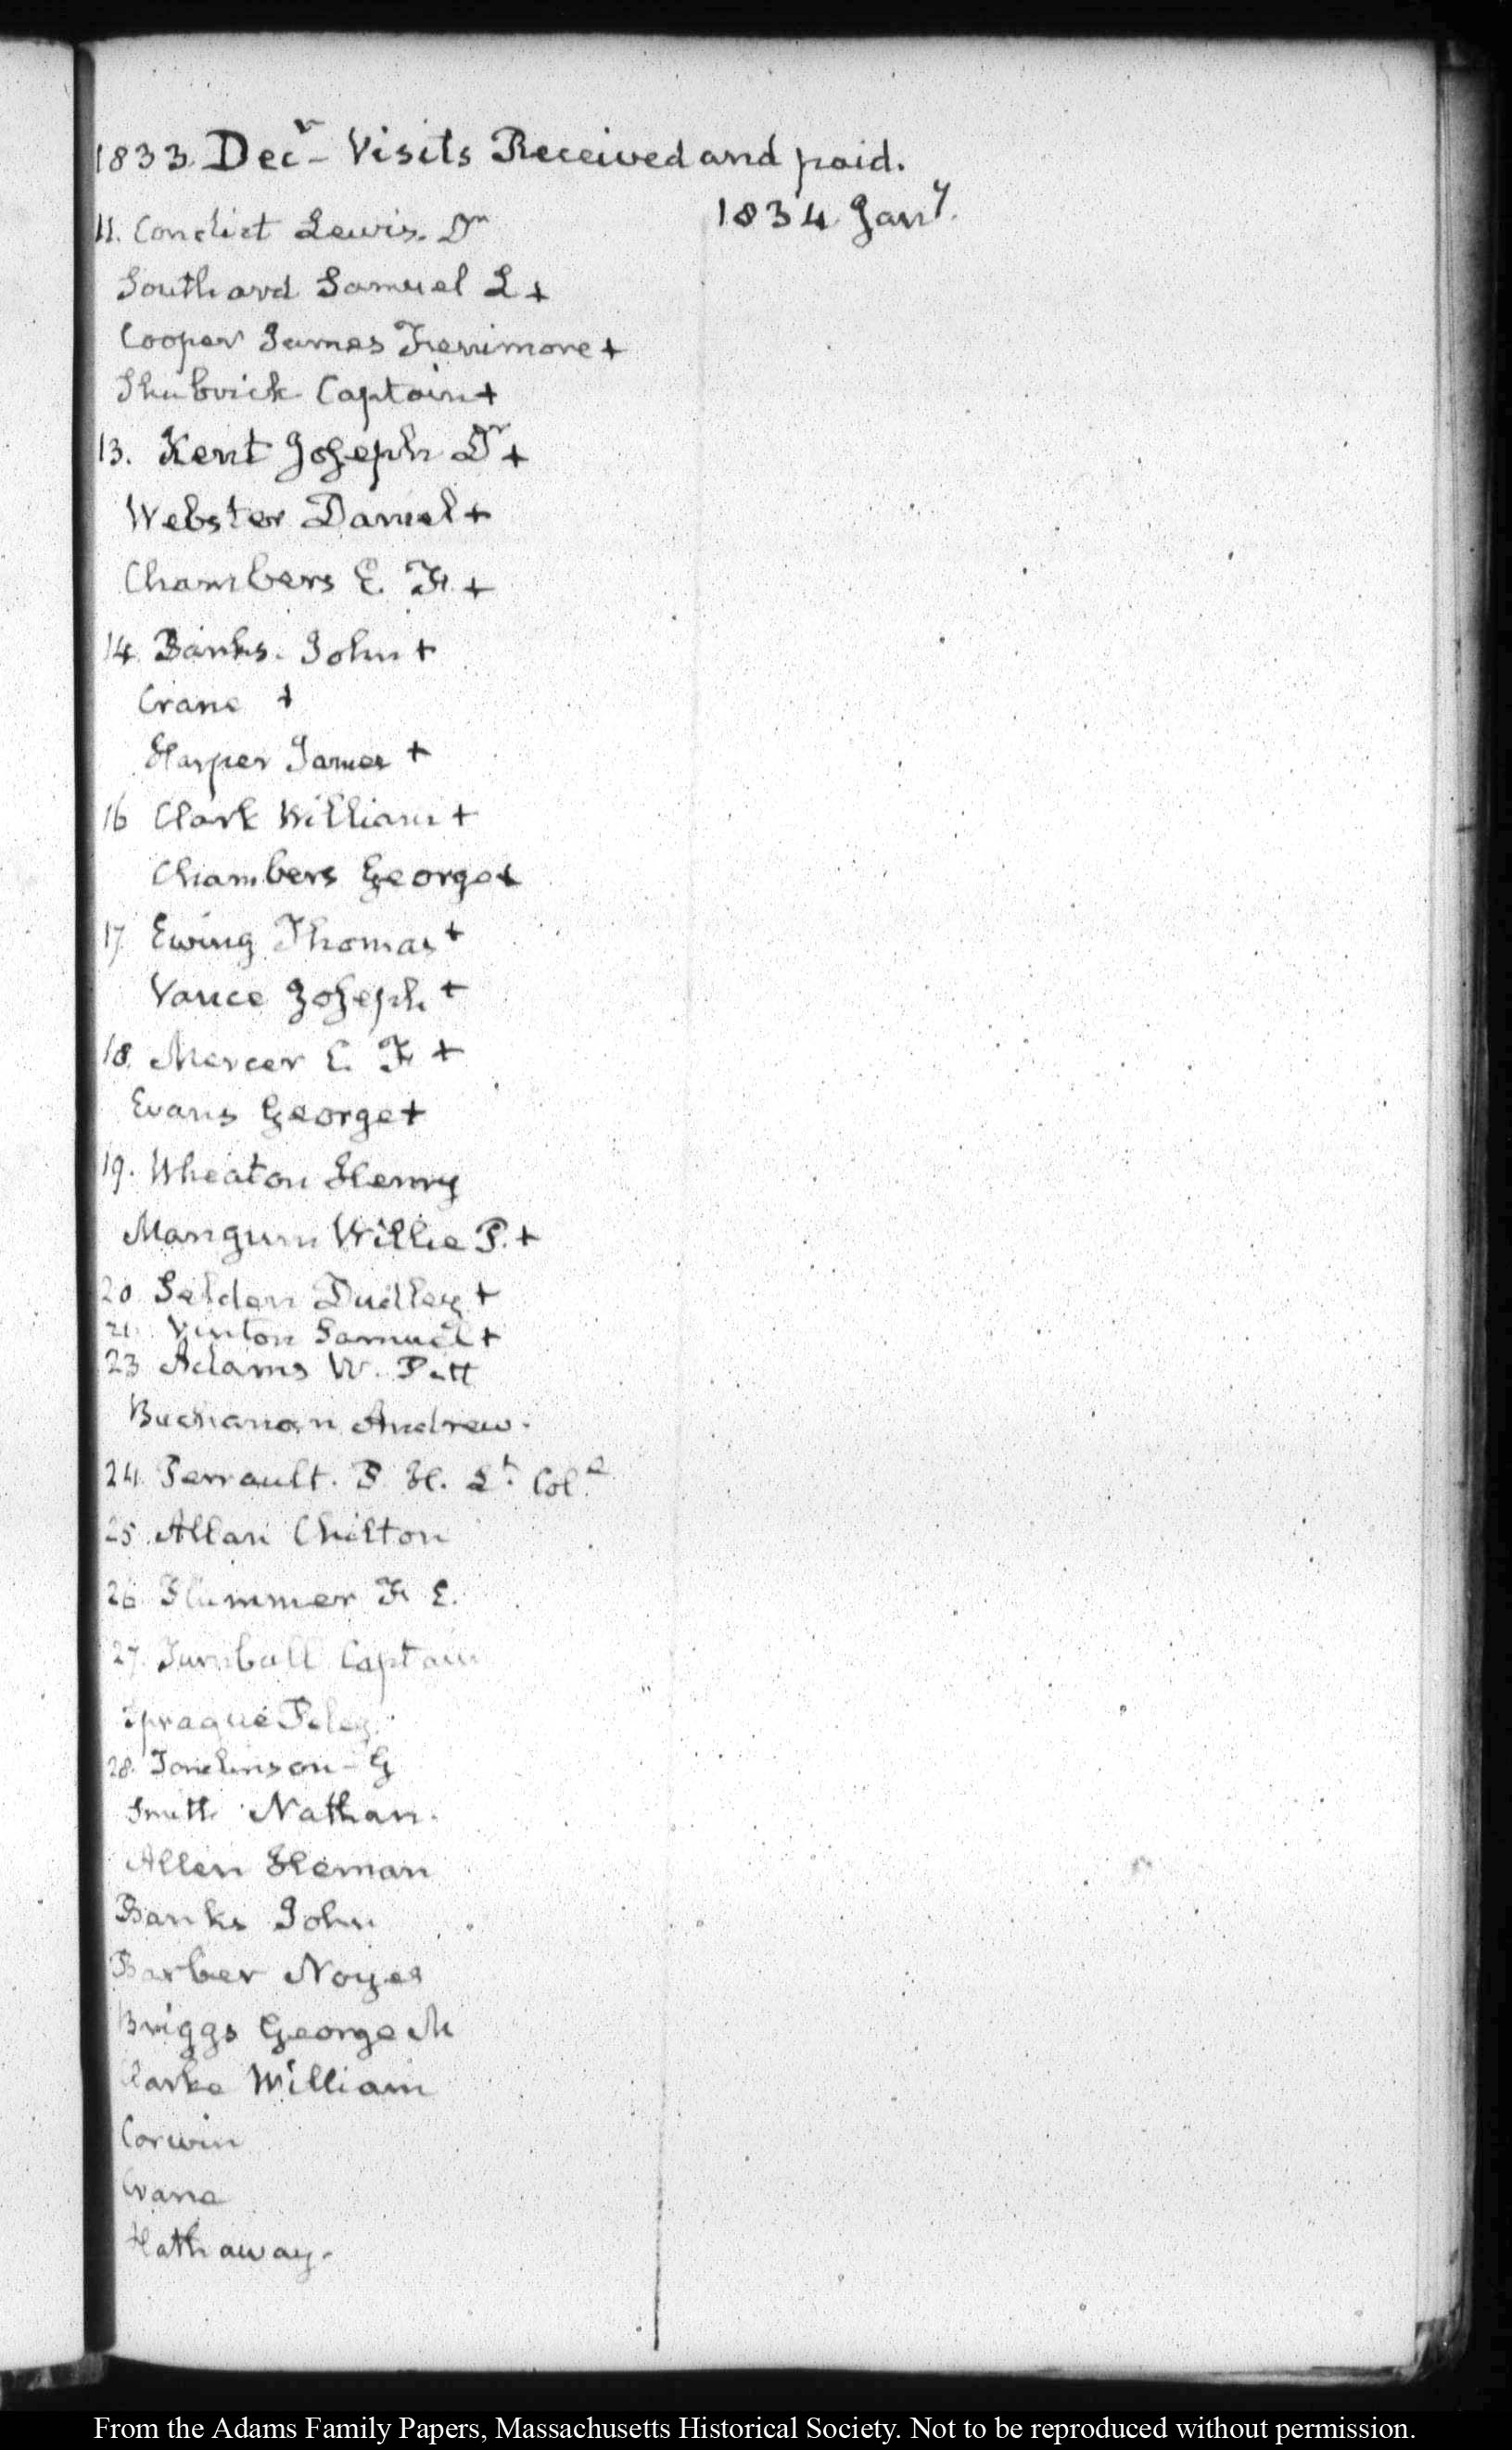 1833. Decr - Visits Received and paid.
1834 Jany.
11. Condict Lewis. Dr
Southard Samuel L +
Cooper James Fennimore +
Shubrick Captain +
13. Kent Joseph Dr +
Webster Daniel +
Chambers E. F. +
14. Banks. John +
Crane +
Harper James +
16 Clark William +
Chambers George +
17 Ewing Thomas +
Vance Joseph +
18. Mercer C. F +
Evans George +
19. Wheaton Henry
Mangum Willie P. +
20 Selden Dudley +
21. Vinton Samuel +
23 Adams W. Pitt
Buchanan Andrew.
24. Perrault. P. H. Lt. Col.e
25. Allan Chilton
26 Plummer F E.
27. Turnbull Captain
Sprague Peleg.
28. Tomlinson - G
Smith Nathan.
Allen Heman
Banks John
Barber Noyes
Briggs George N
Clarke William
Corwin
Crane
Hathaway.
From the Adams Family Papers, Massachusetts Historical Society. Not to be reproduced without permission.